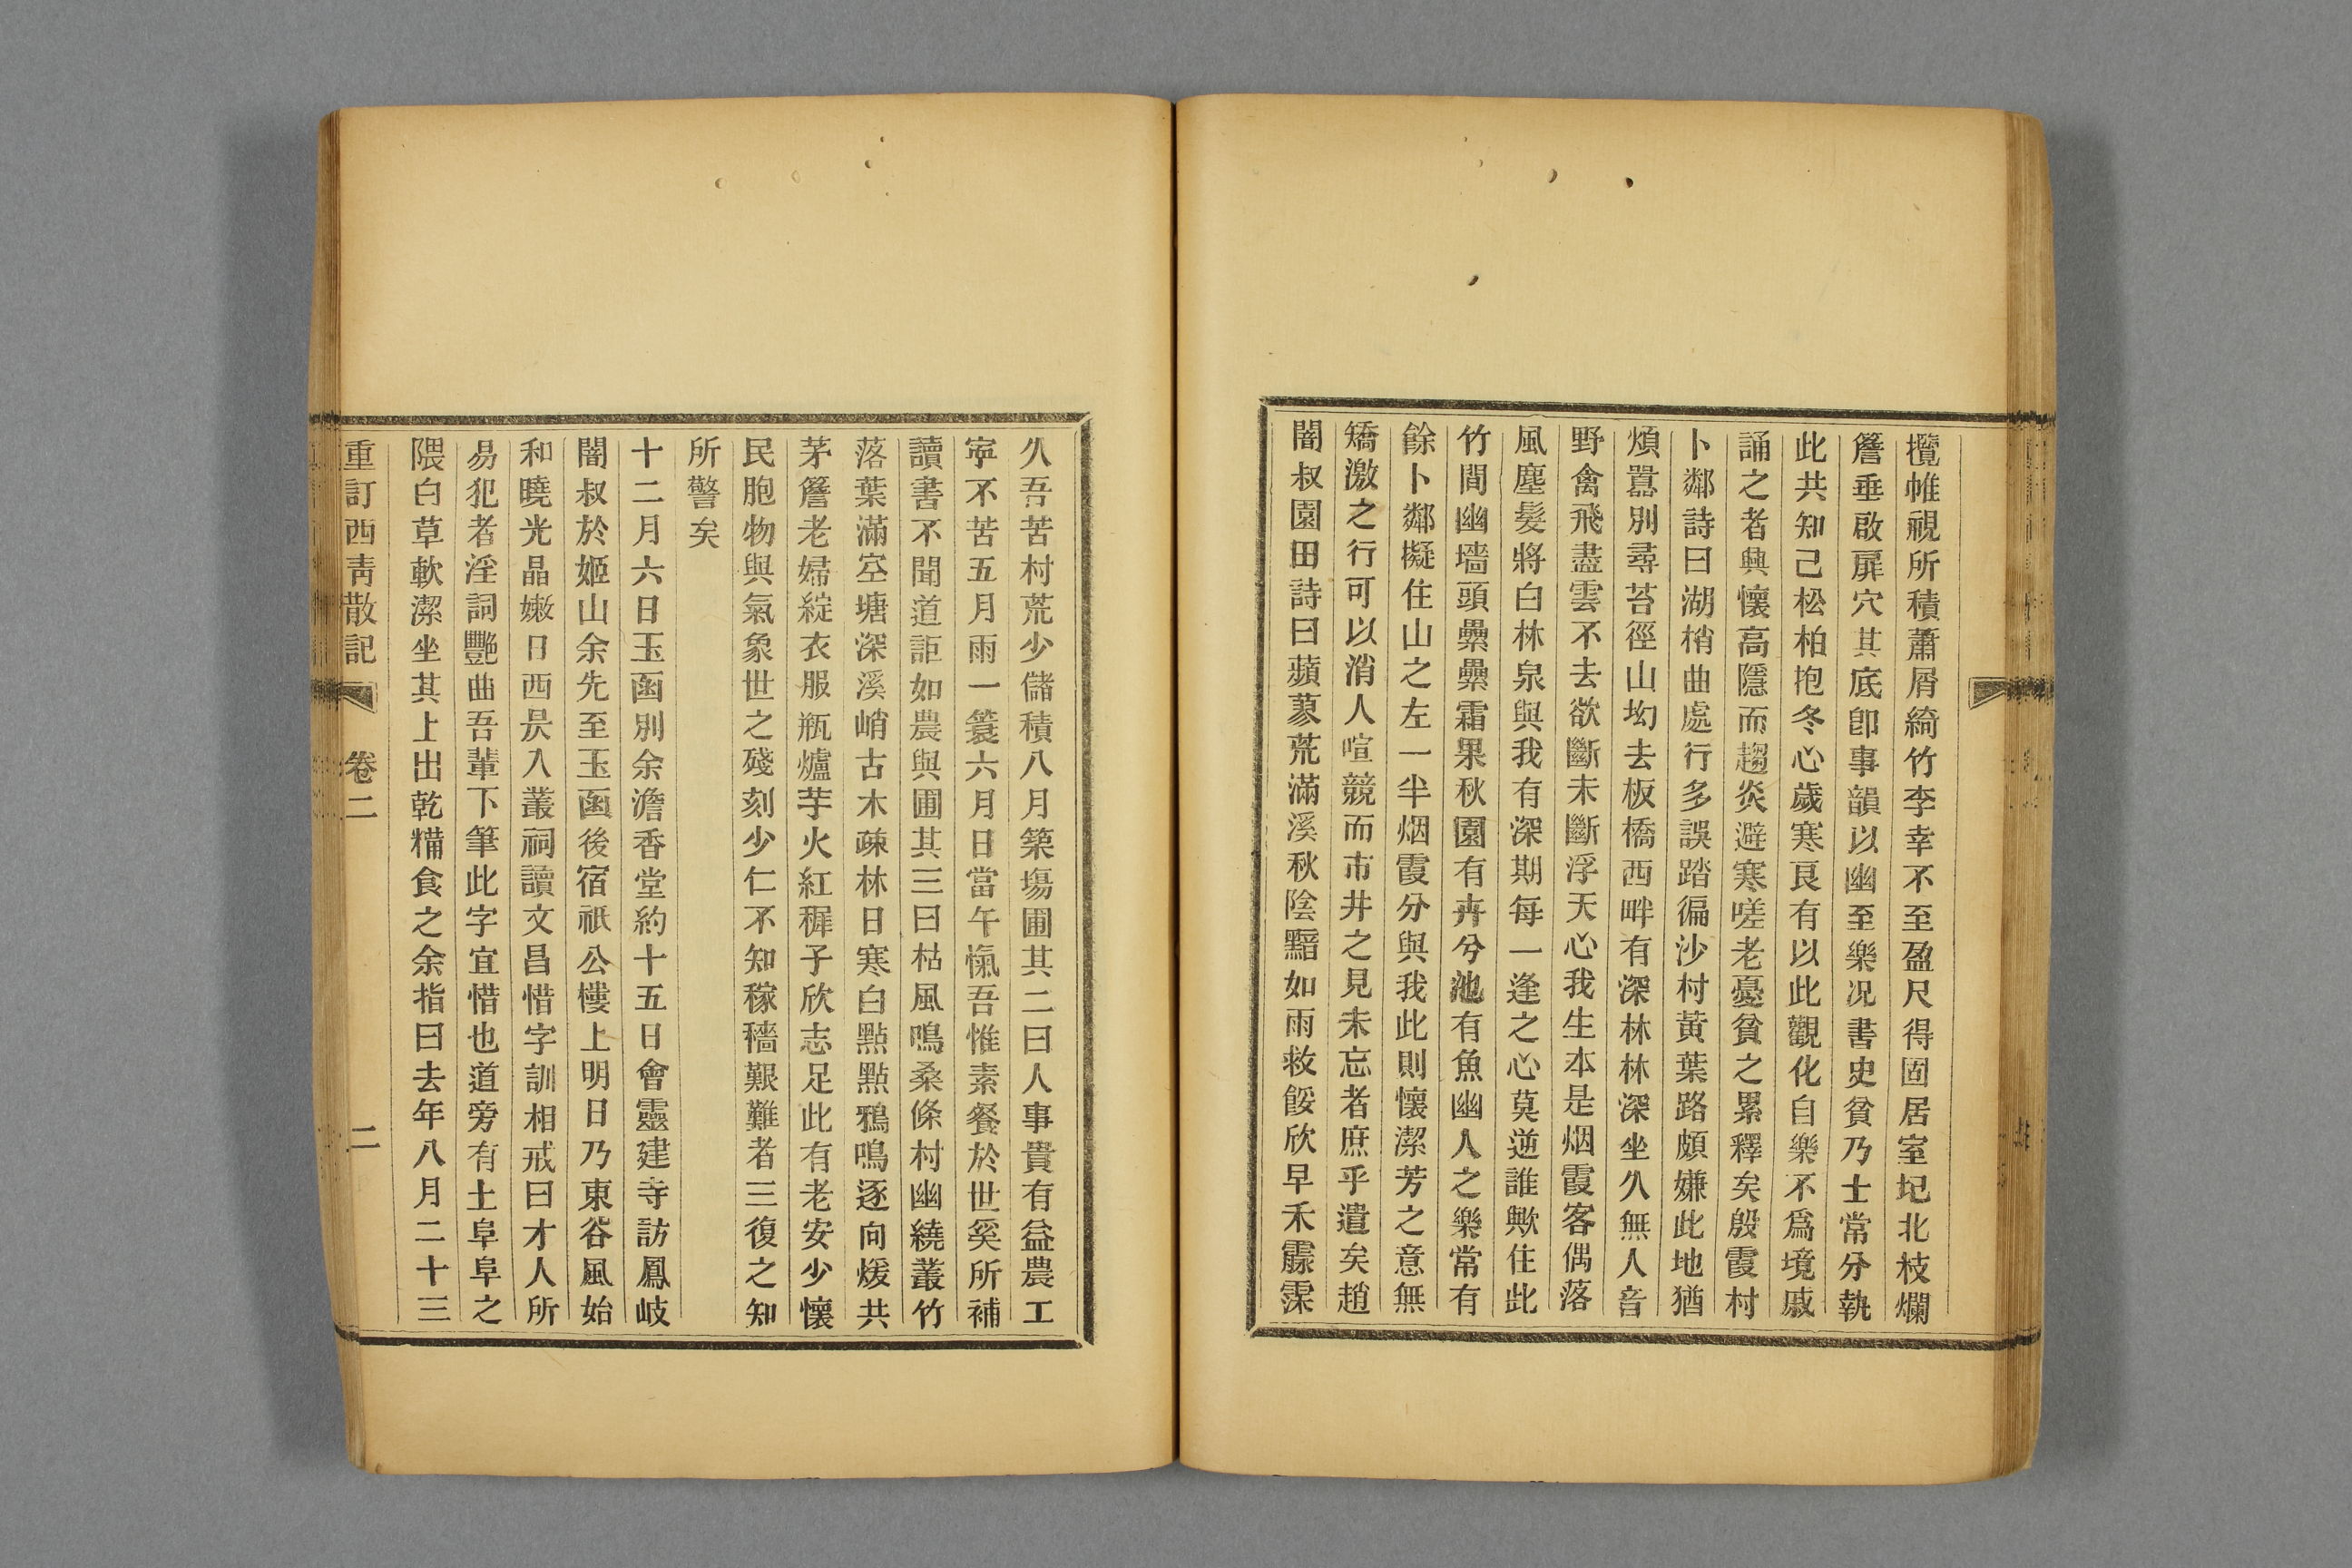 攬帷視所積蕭屑綺竹李幸不至盈尺得固居室圮北枝爛
簷垂啟扉穴其底卽事韻以幽至樂况書史貧乃士常分執
此共知己松柏抱冬心歲寒良有以此觀化自樂不爲境戚
誦之者興懷高隱而趨炎避寒嗟老憂貧之累釋矣殷霞村
卜鄰詩曰湖梢曲處行多誤踏徧沙村黃葉路頗嫌此地猶
煩囂別尋苔徑山㘭去板橋西畔有深林林深坐久無人音
野禽飛盡雲不去欲斷未斷浮天心我生本是烟霞客偶落
風塵髮將白林泉與我有深期每一逢之心莫逆誰歟住此
竹間幽墻頭纍纍霜果秋園有卉兮池有魚幽人之樂常有
餘卜鄰擬住山之左一半烟霞分與我此則懷潔芳之意無
矯激之行可以消人喧競而市井之見未忘者庶乎遣矣趙
闇叔園田詩曰蘋蓼荒滿溪秋陰黯如雨救餒欣早禾霢霂
久吾苦村荒少儲積八月築塲圃其二曰人事貴有益農工
寧不苦五月雨一簑六月日當午愾吾惟素餐於世奚所補
讀書不聞道詎如農與圃其三曰枯風鳴桑條村幽繞叢竹
落葉滿空塘深溪峭古木疎林日寒白點點鴉鳴逐向煖共
茅簷老婦綻衣服瓶爐芋火紅穉子欣志足此有老安少懷
民胞物與氣象世之殘刻少仁不知稼穡艱難者三復之知
所警矣
十二月六日玉函別余澹香堂約十五日會靈建寺訪鳳岐
闇叔於姬山余先至玉函後宿祇公樓上明日乃東谷風始
和曉光晶嫩日西昃入叢祠讀文昌惜字訓相戒曰才人所
易犯者淫詞豔曲吾輩下筆此字宜惜也道旁有土阜阜之
隈白草軟潔坐其上出乾糒食之余指曰去年八月二十三
重訂西靑散記 卷二 二